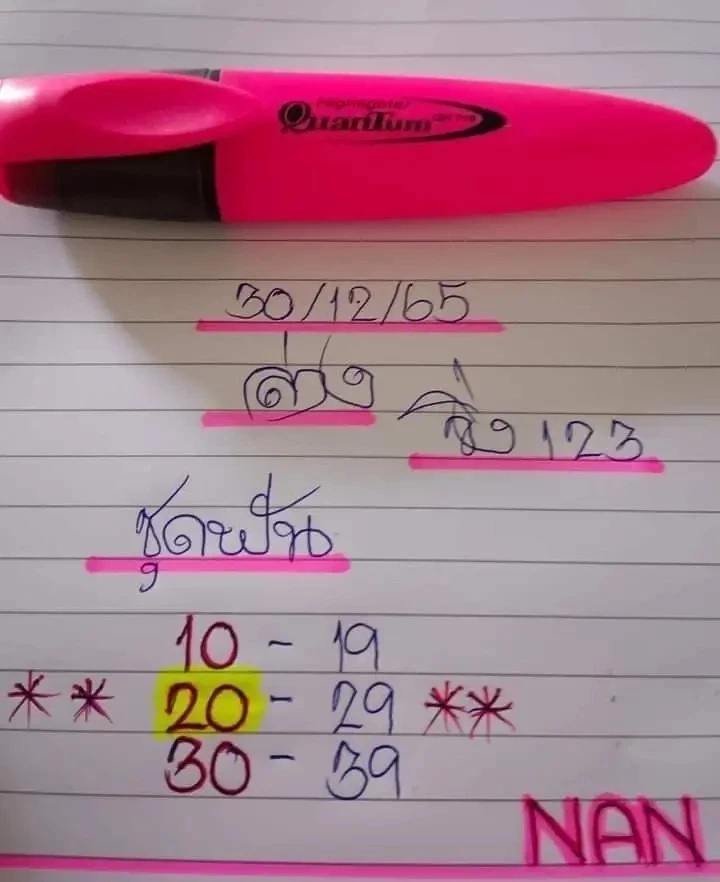 Highlighter
QuanTum
30/12/65
ล่าง
วิ่ง 123
ชุดฟัน
10 - 19
** 20 - 29 **
30 - 39
NAN